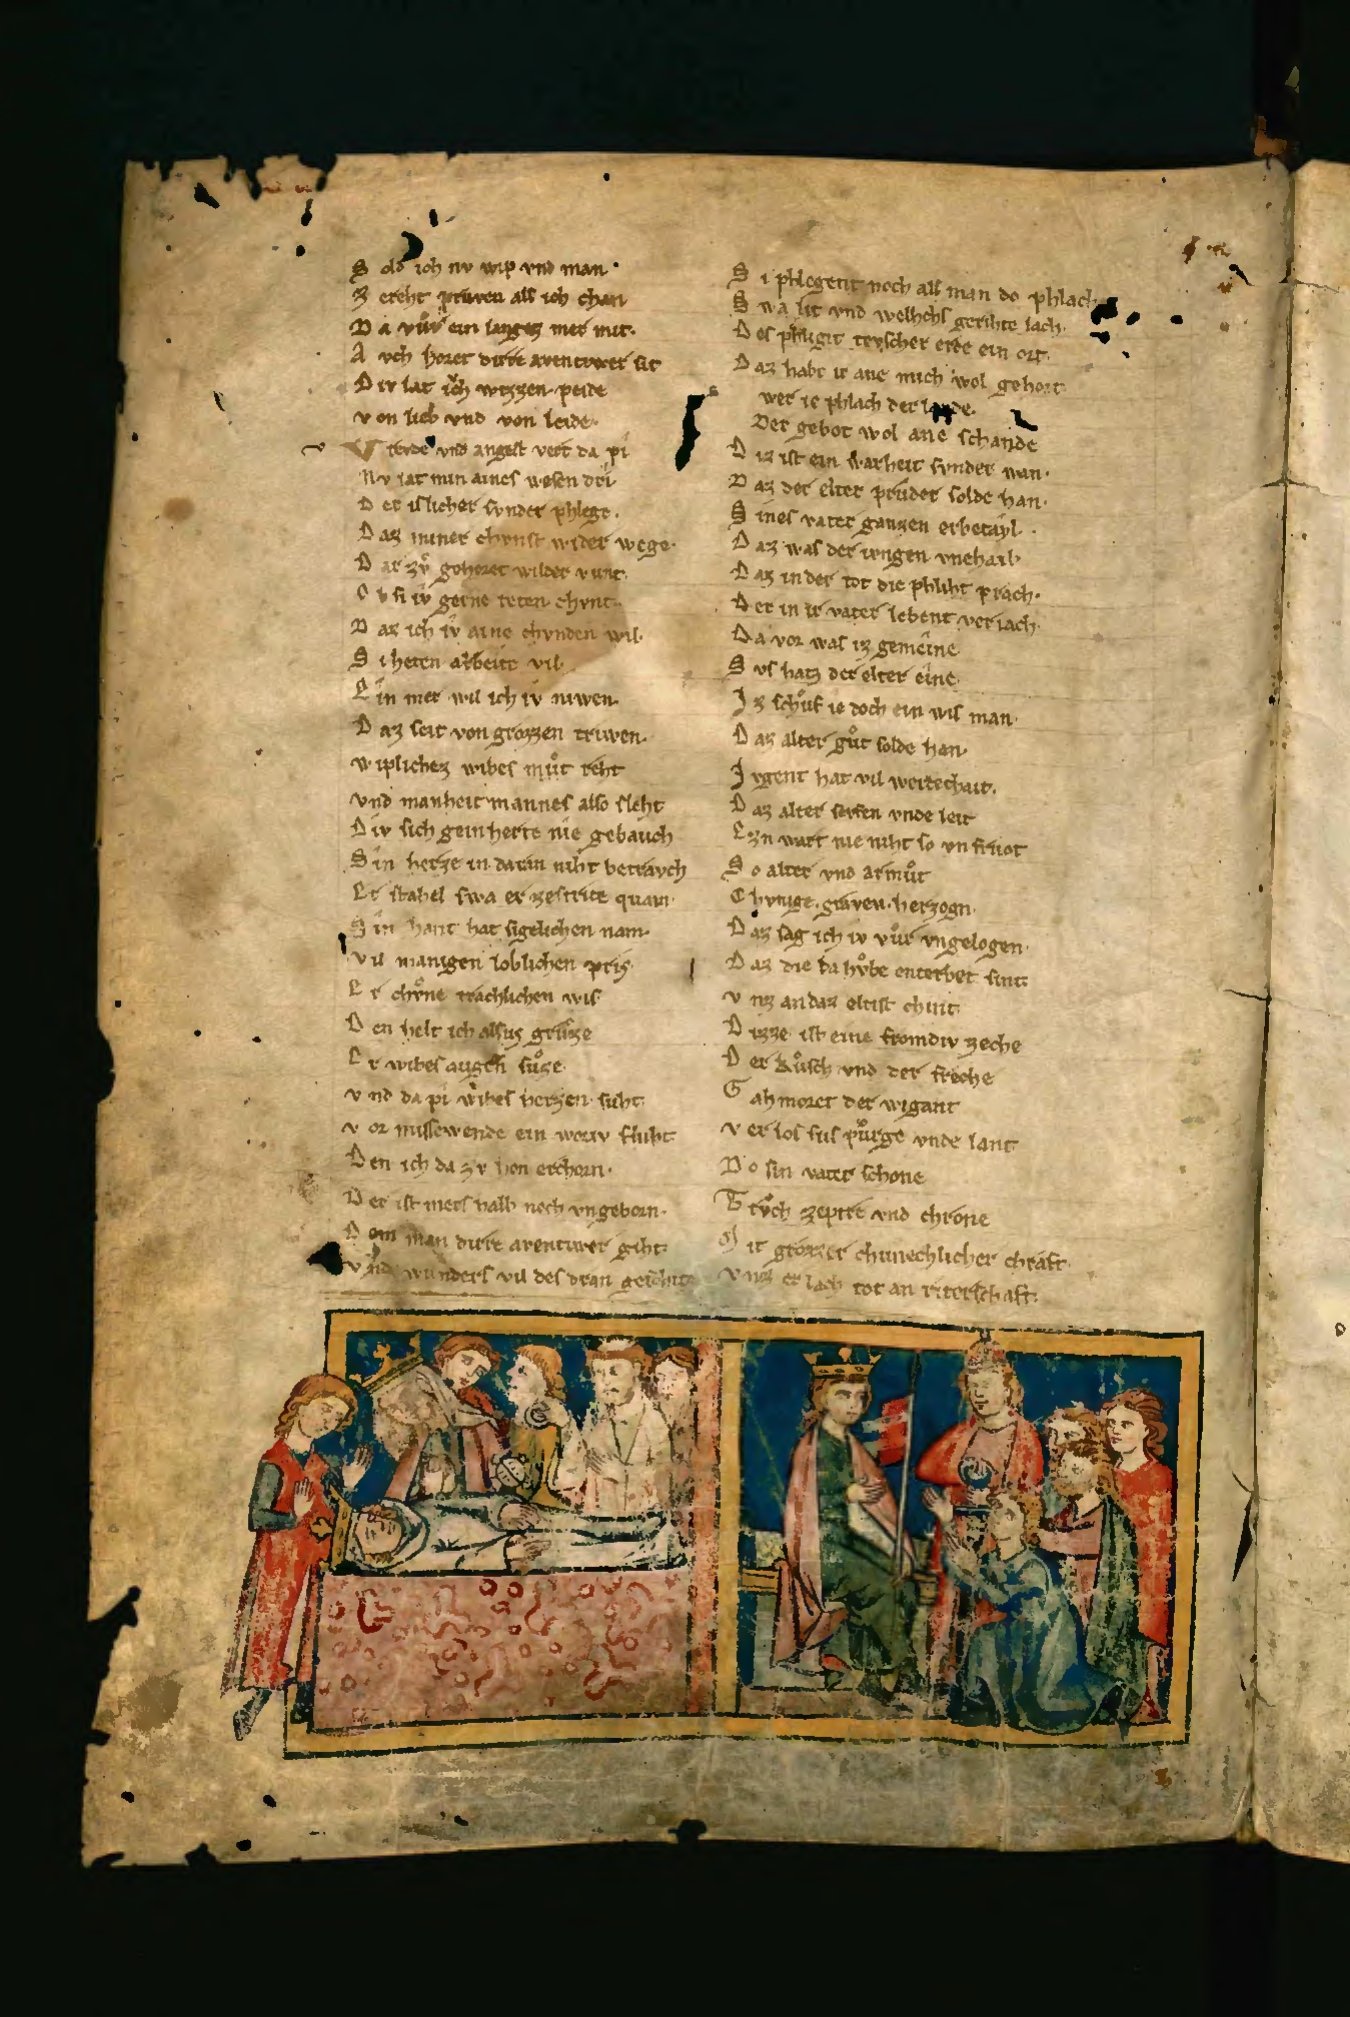 S old ich nv wip vnd man
Z ereht prüven als ich chan
D a vür ein langez mer mit
A vch horet dirre aventivrer sit
D iv lat ich wizzen peide
v on lieb vnd von leide
V revde vnd angest vert da pi
Nv lat min aines wesen dri
D er islicher svnder phlege
D az miner chvnst wider wege
D ar zv gehoret wilder vunt
O b si iv gerne teten chvnt
D az ich iv aine chvnden wil
S i heten arbeite vil
E in mer wil ich iv niwen
D az seit von grozzen triwen
w iplichez wibes mut reht
vnd manheit mannes also sleht
D iv sich gein herte nie gebauch
S in herze in daran niht betravch
E r stahel swa er ze strite quam
S in hant hat sigelichen nam
v il manigen loblichen pris
E r chüne trachlichen wis
D en helt ich alsus grüzze
E r wibes augen suze
v nd da pi wibes herzen suht
v or missewende ein woriv fluht
D en ich da zv hon erchorn
D er ist mers halb noch vngeborn
D om man dirre aventivrer giht
v nde wunders vil des dran geschiht
S i phlegent noch als man do phlach
S wa lit vnd welhchs gerihte lach
D es phligit tevscher erde ein ort
D az habt ir ane mich wol gehort
wer ie phlach der lande
Der gebot wol ane schande
D iz ist ein warheit svnder wan
D az der elter prüder solde han
S ines vater ganzen erbetayl
D az was der ivngen vnehail
D az in der tot die phliht prach
D er in ir vater lebent veriach
D a vor was iz gemeine
S vs hatz der elter eine
I z schuf ie doch ein wis man
D az alter gut solde han
I vgent hat vil werdechait
D az alter sevfen vnde leit
E zn wart nie niht so vnfruot
S o alter vnd armut
C hvnige graven herzogn
D az sag ich iv vur vngelogen
D az die da hvbe enterbet sint
v nz an daz eltist chint
D izze ist eine fromdiv zeche
D er kusch vnd der freche
G ahmoret der wigant
v er los sus pürge vnde lant
D o sin vater schone
T ruch zeptre vnd chrone
M it grozzer chunechlicher chraft
v nz er lach tot an riterschaft